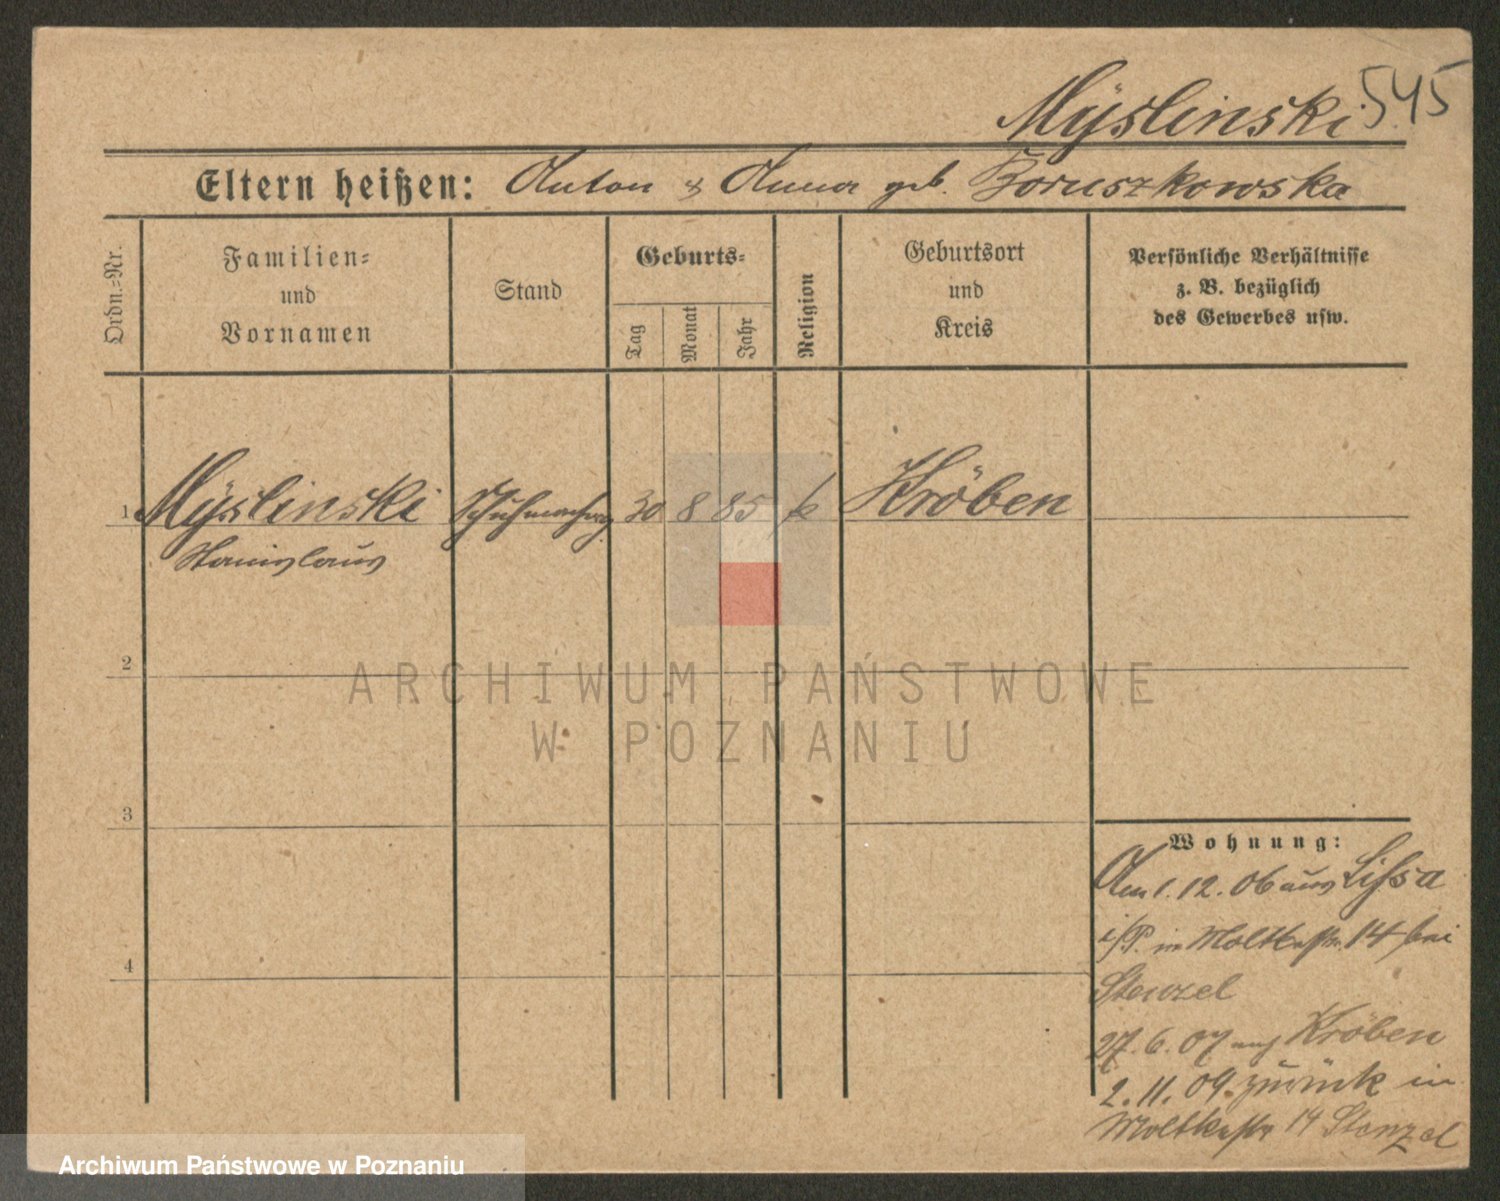 Mÿslinski 545
Eltern heißen: Anton & Anna geb. Boruszkowska
Ordn.-Nr.
Familien-
und
Vornamen
Stand
Geburts-
Tag
Monat
Jahr
Religion
Geburtsort
und
Kreis
Persönliche Verhältnisse
z. B. bezüglich
des Gewerbes usw.
1 Mÿslinski Schuhmacherg 30 8 85 k Kröben
Stanislaus
2
ARCHIWUM PAŃSTWOWE
W POZNANIU
3
Wohnung:
Am 1. 12. 06 aus Lissa
i/P. in Moltkestr. 14 bei
Stenzel
27. 6. 07 nach Kröben
4
2. 11. 09. zurück in
Moltkestr 14 Stenzel
Archiwum Państwowe w Poznaniu